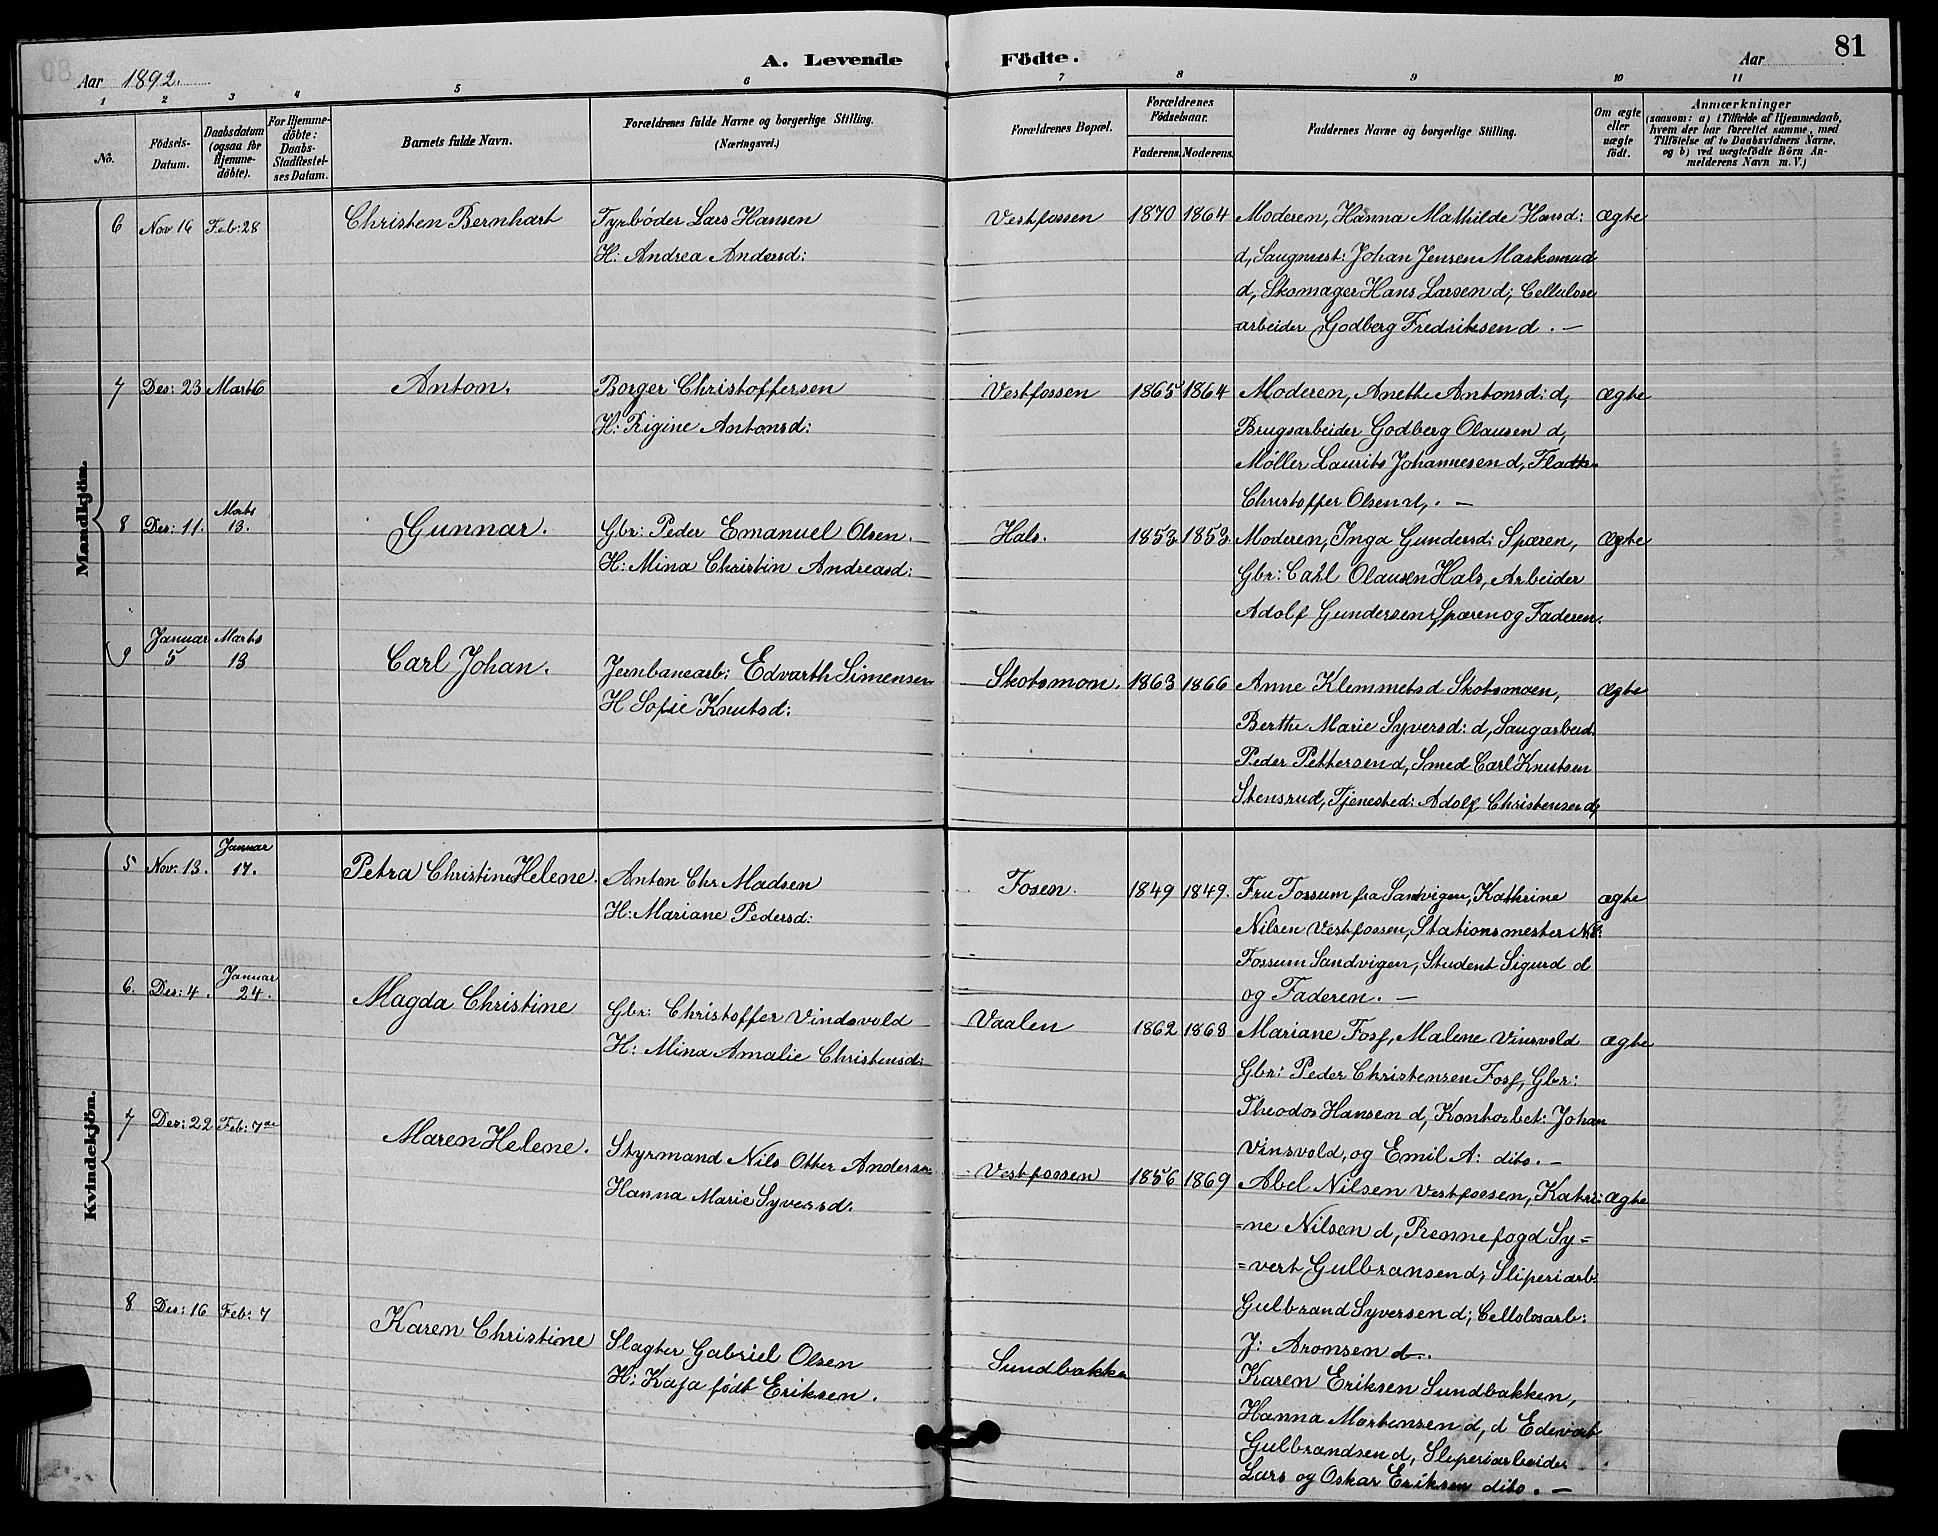 81
Aar 1892.
A. Levende Födte.
Aar
1 2 3 4 5 6 7 8 9 10 11
No.
Födsels-Datum.
Daabsdatum (ogsaa for Hjemme-döbte).
For Hjemme-döbte: Daabs-Stadfæstel-ses Datum.
Barnets fulde Navn.
Forældrenes fulde Navne og borgerlige Stilling.
(Næringsvei.)
Forældrenes Bopæl.
Forældrenes Födselsaar.
Faderens. Moderens.
Faddernes Navne og borgerlige Stilling.
Om ægte eller uægte födt.
Anmærkninger
(saasom: a) i Tilfælde af Hjemmedaab, hvem der har forrettet samme, med Tilföielse af to Daabsvidners Navne, og b) ved uægtefödte Börn An-melderens Navn m. V.)
Mandkjön.
6 Nov 16 Feb: 28 Christen Bernhart Fyrbøder Lars Hansen Vestfossen 1870 1864 Moderen, Hanna Mathilde Hansd: ægte
H: Andrea Andersd: d, Saugmest: Johan Jensen
d, Skomager Hans Larsen d; Cellulose
arbeider Godberg Fredriksen d. —
7 Des: 23 Marts 6 Anton. Borger Christoffersen Vestfossen 1865 1864 Moderen, Anethe Antonsd: d, ægte
H: Rigine Antonsd: Brugsarbeider Godberg Olausen d,
Møller Laurits Johannesen d,
Christoffer Olsen d. —
8 Des: 11. Marts 13. Gunnar. Gbr: Peder Emanuel Olsen. Hals. 1853 1853 Moderen, Inga Gundersd: Spæren, ægte
H: Mina Christin Andreasd: Gbr: Carl Olausen Hals, Arbeider
Adolf Gundersen Spæren og Faderen.
9 Januar 5 Marts 13 Carl Johan. Jernbanearb: Edvarth Simensen Skotsmoen. 1863 1866 Anne Klemmetsd Skotsmoen, ægte
H Sofie Knutsd: Berthe Marie Syversd: d, Saugarbeid.
Peder Pettersen d, Smed Carl Knutsen
Stensrud, Tjenested: Adolf Christensen d,
Kvindekjön.
5 Nov: 13. Januar 17. Petra Christine Helene. Anton Chr Madsen Fosen. 1849 1849. Fru Fossum fra Sandvigen, Kathrine ægte
H: Mariane Pedersd: Nilsen Vestfossen, Stationsmester
Fossum Sandvigen, Student Sigurd d
og Faderen. —
6. Des: 4. Januar 24. Magda Christine Gbr: Christoffer Vindsvold Vaalen 1862 1863 Mariane Fosf, Malene Vinsvold ægte
H: Mina Amalie Christensd: Gbr: Peder Christensen Fosf, Gbr:
Theodor Hansen d, Kontorbet: Johan
Vinsvold, og Emil A: dito. —
7 Des: 22 Feb: 7de Maren Helene. Styrmand Nils Otter Andersen Vestfossen 1856 1869 Abel Nilsen Vestfossen, Kathri: ægte
Hanna Marie Syversd. =ne Nilsen d, Rennefogd Sy=
=vert Gulbransen d; Sliperiarb:
Gulbrand Syversen d; Cellolosarb:
J: Aronsen d.
8 Des: 16 Feb: 7 Karen Christine Slagter Gabriel Olsen Sundbakken Karen Eriksen Sundbakken,
H: Kaja født Eriksen. Hanna Mortensen d, d Edevart
Gulbrandsen d, Sliperiarbeider
Lars og Oskar Eriksen dito. —